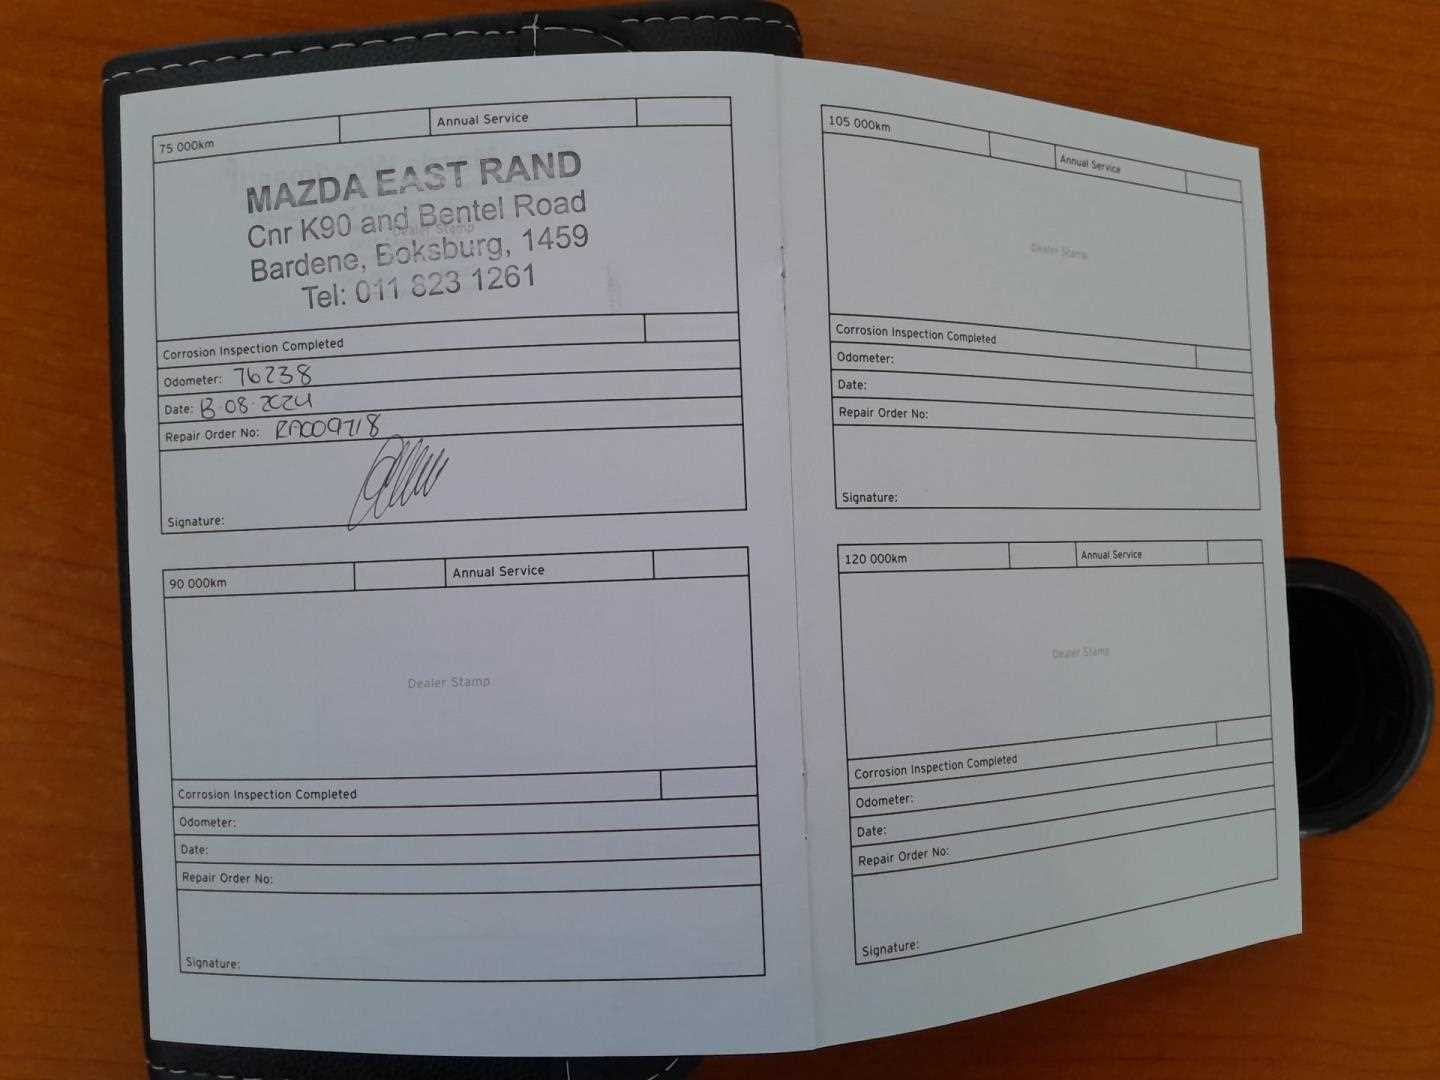 75 000km
Annual Service
Dealer Stamp
MAZDA EAST RAND
Cnr K90 and Bentel Road
Bardene, Boksburg, 1459
Tel: 011 823 1261
Corrosion Inspection Completed
Odometer: 76238
Date: 13·08·2024
Repair Order No: RA009718
Signature:
90 000km
Annual Service
Dealer Stamp
Corrosion Inspection Completed
Odometer:
Date:
Repair Order No:
Signature:
105 000km
Annual Service
Dealer Stamp
Corrosion Inspection Completed
Odometer:
Date:
Repair Order No:
Signature:
120 000km
Annual Service
Dealer Stamp
Corrosion Inspection Completed
Odometer:
Date:
Repair Order No:
Signature: